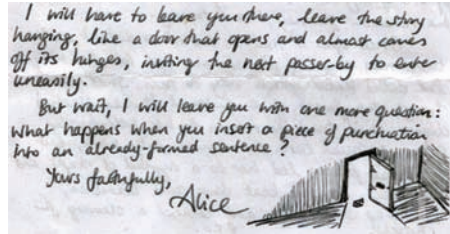 I will have to leave you there, leave the story
hanging, like a door that opens and almost comes
off its hinges, inviting the next passer-by to enter
uneasily.
But wait, I will leave you with one more question:
what happens when you insert a piece of punctuation
into an already-formed sentence?
Yours faithfully,
Alice